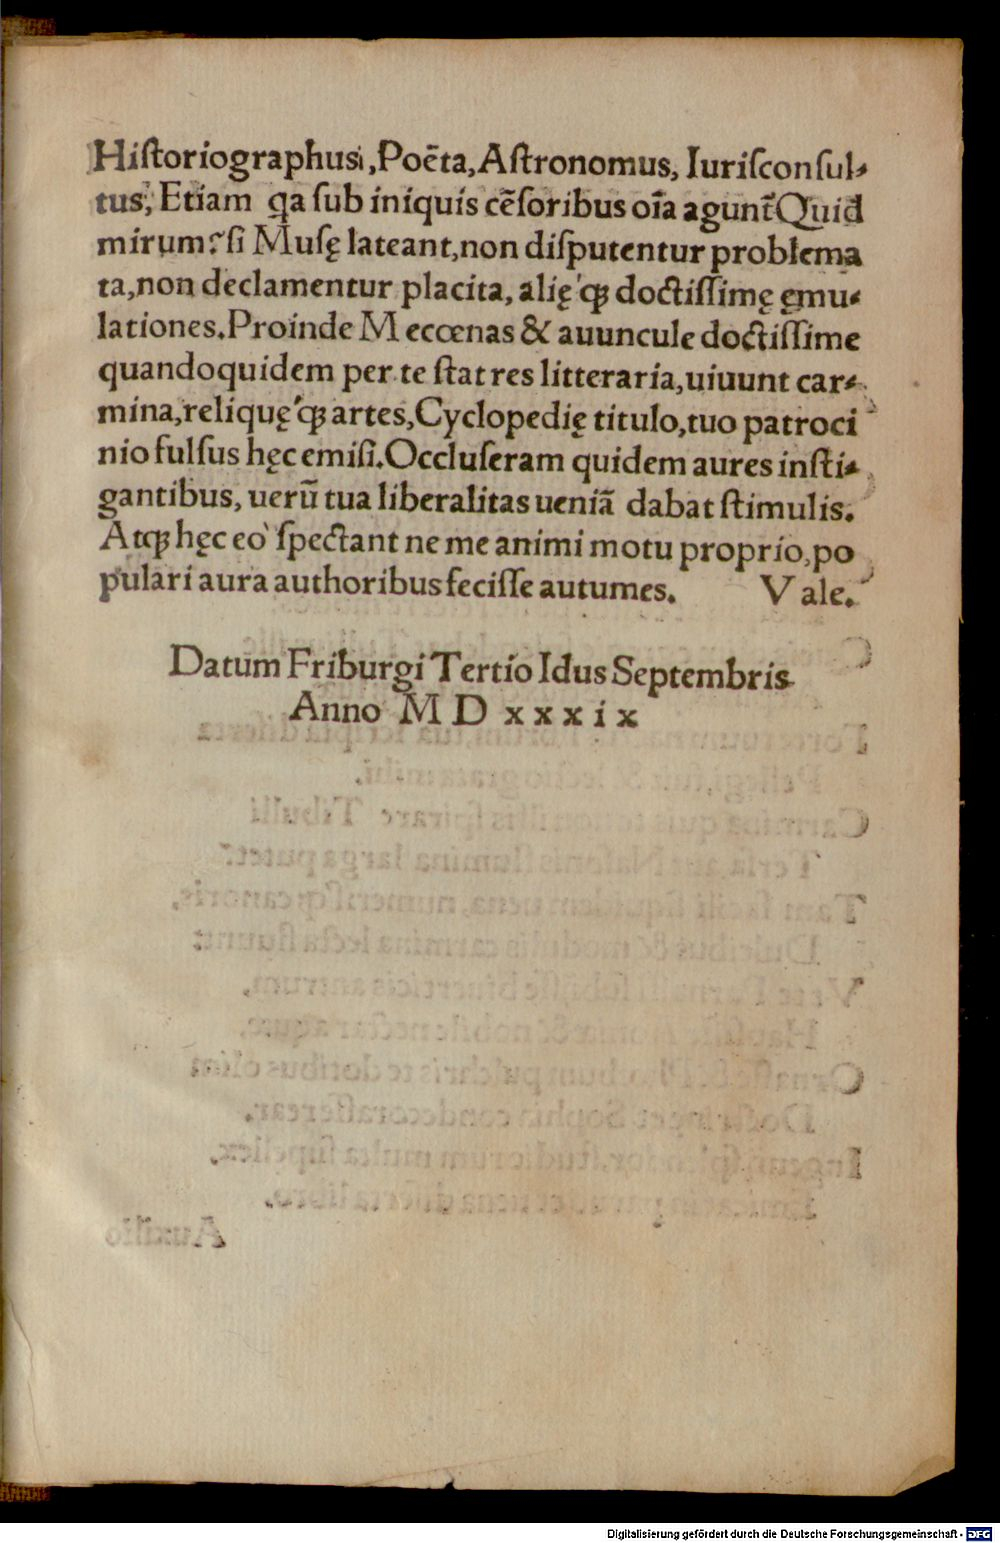 Hiſtoriographusi, Poẽta, Aſtronomus, Iuriſconſul⸗
tus, Etiam qa ſub iniquis cẽſoribus oĩa agunt̃ Quid
mirum? ſi Muſę lateant, non diſputentur problema
ta, non declamentur placita, alię'qꝫ doctiſſimę ęmu⸗
lationes. Proinde Mecœnas & auuncule doctiſſime
quandoquidem per te ſtat res litteraria, uiuunt car⸗
mina, reliquę'qꝫ artes, Cyclopedię titulo, tuo patroci
nio fulſus hęc emiſi. Occluſeram quidem aures inſti⸗
gantibus, uerũ tua liberalitas ueniã dabat ſtimulis.
Atqꝫ hęc eò ſpectant ne me animi motu proprio, po
pulari aura authoribus feciſſe autumes. Vale.
Datum Friburgi Tertio Idus Septembris
Anno M D x x x i x
Digitalisierung gefördert durch die Deutsche Forschungsgemeinschaft - DFG